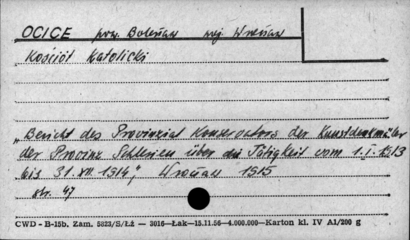 OCICE pow. Bolesław woj. Wrocław
Kościół Katolicki
„Bericht des Provinzial Konservators der Kunstdenkmäler
der Provinz Schlesien über die Tätigkeit vom 1.I.1913
bis 31.XII 1914", Wrocław 1915
str. 47
CWD - B-15b, Zam. 5823/S/Łż — 3016—Łak—15.11.56—4.000.000—Karton kl. IV A1/200 g